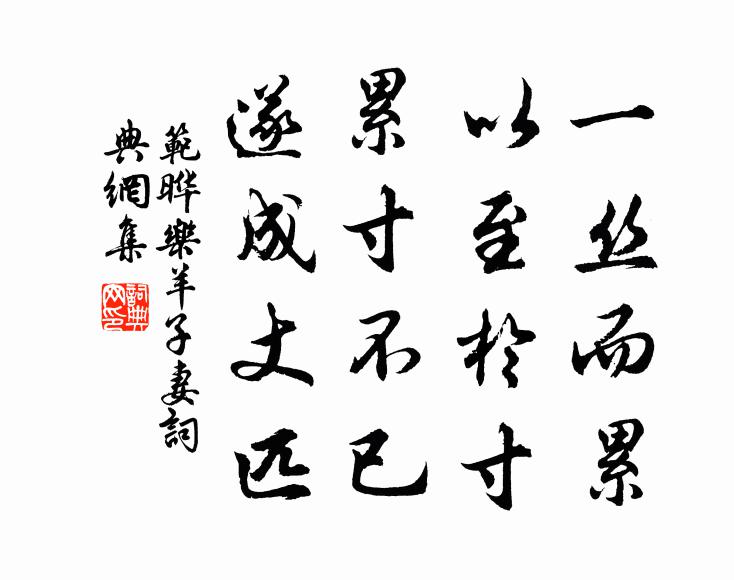 一丝而累
以至於寸
累寸不已
遂成丈匹
範曄樂羊子妻詞
典網集
詞典
网印